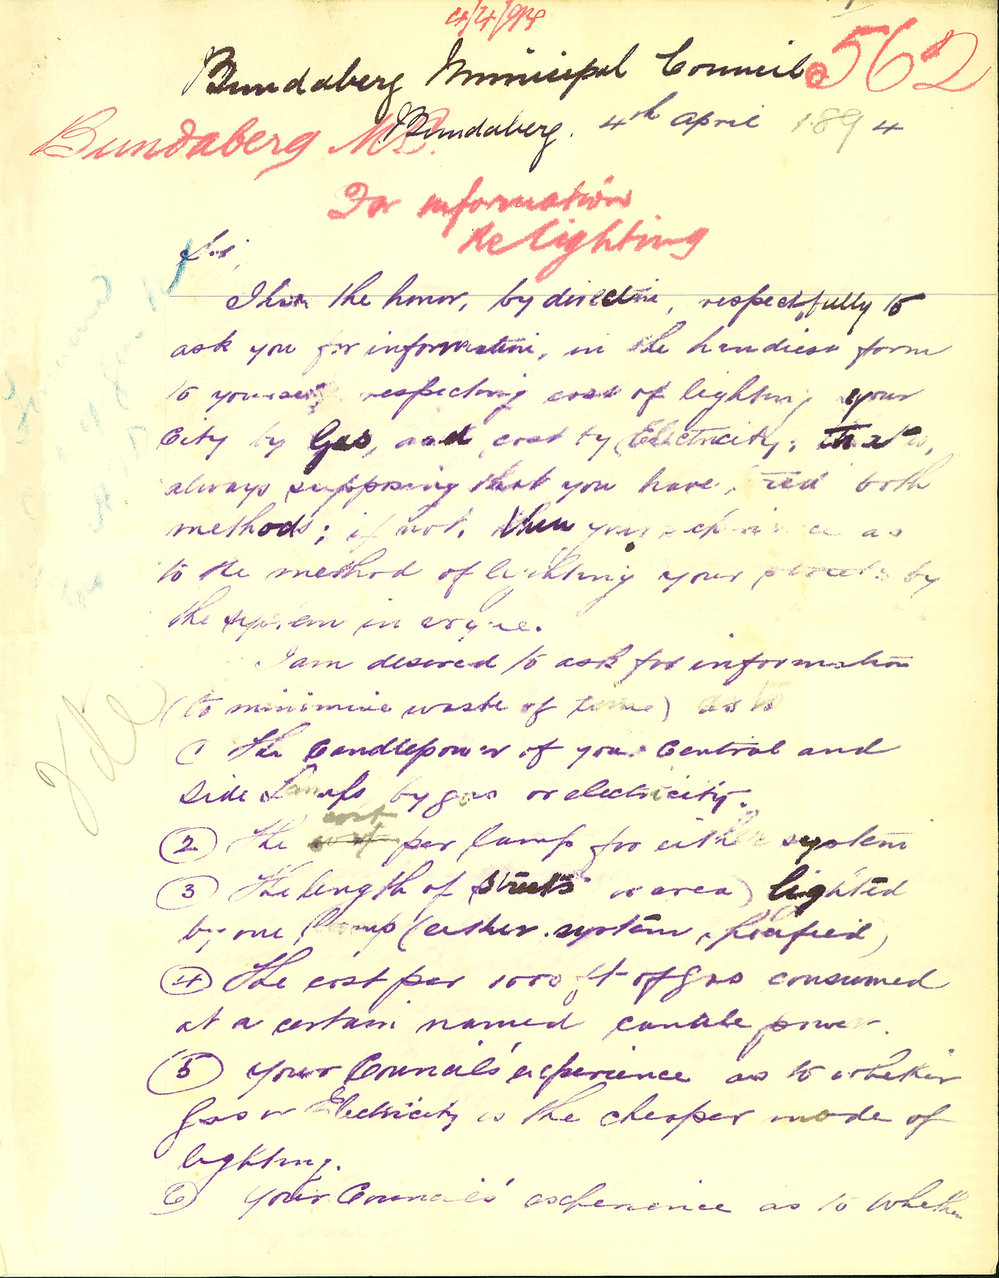 4/4/94
Bundaberg Municipal Council
562
Bundaberg M.C.
Bundaberg. 4th April 1894
For information
Re lighting
Sir,
I have the honor, by direction, respectfully to
ask you for information, in the handiest form
to yourself respecting cost of lighting your
City by Gas, and cost by Electricity; that is,
always supposing that you have tried both
methods; if not, then your experience as
to the method of lighting your streets by
the system in vogue.
I am desired to ask for information
(to minimise waste of time) as to
1 The Candlepower of your Central and
side Lamps by gas or electricity.
cost
(2) The per lamp for either system
(3) The length of streets (or area) lighted
by one lamp (either system, specified)
(4) The cost per 1000 ft of gas consumed
at a certain named candle power.
(5) Your Council's experience as to whether
Gas or Electricity is the cheaper mode of
lighting.
(6) Your Council's experience as to whether